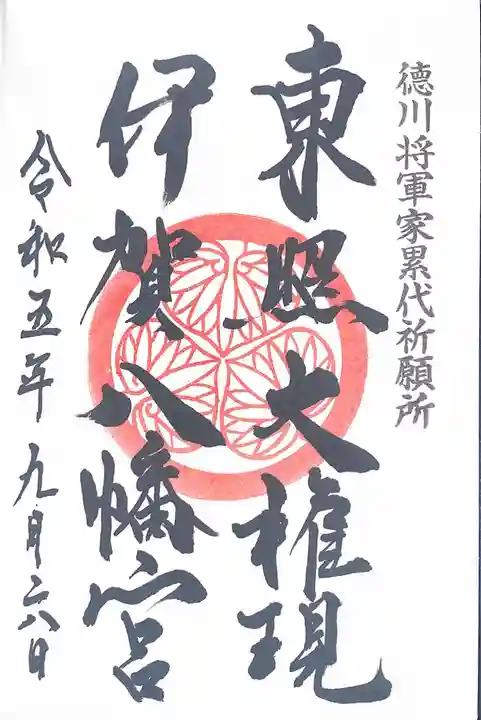 徳川将軍家累代祈願所
東照大権現
伊賀八幡宮
令和五年九月二八日